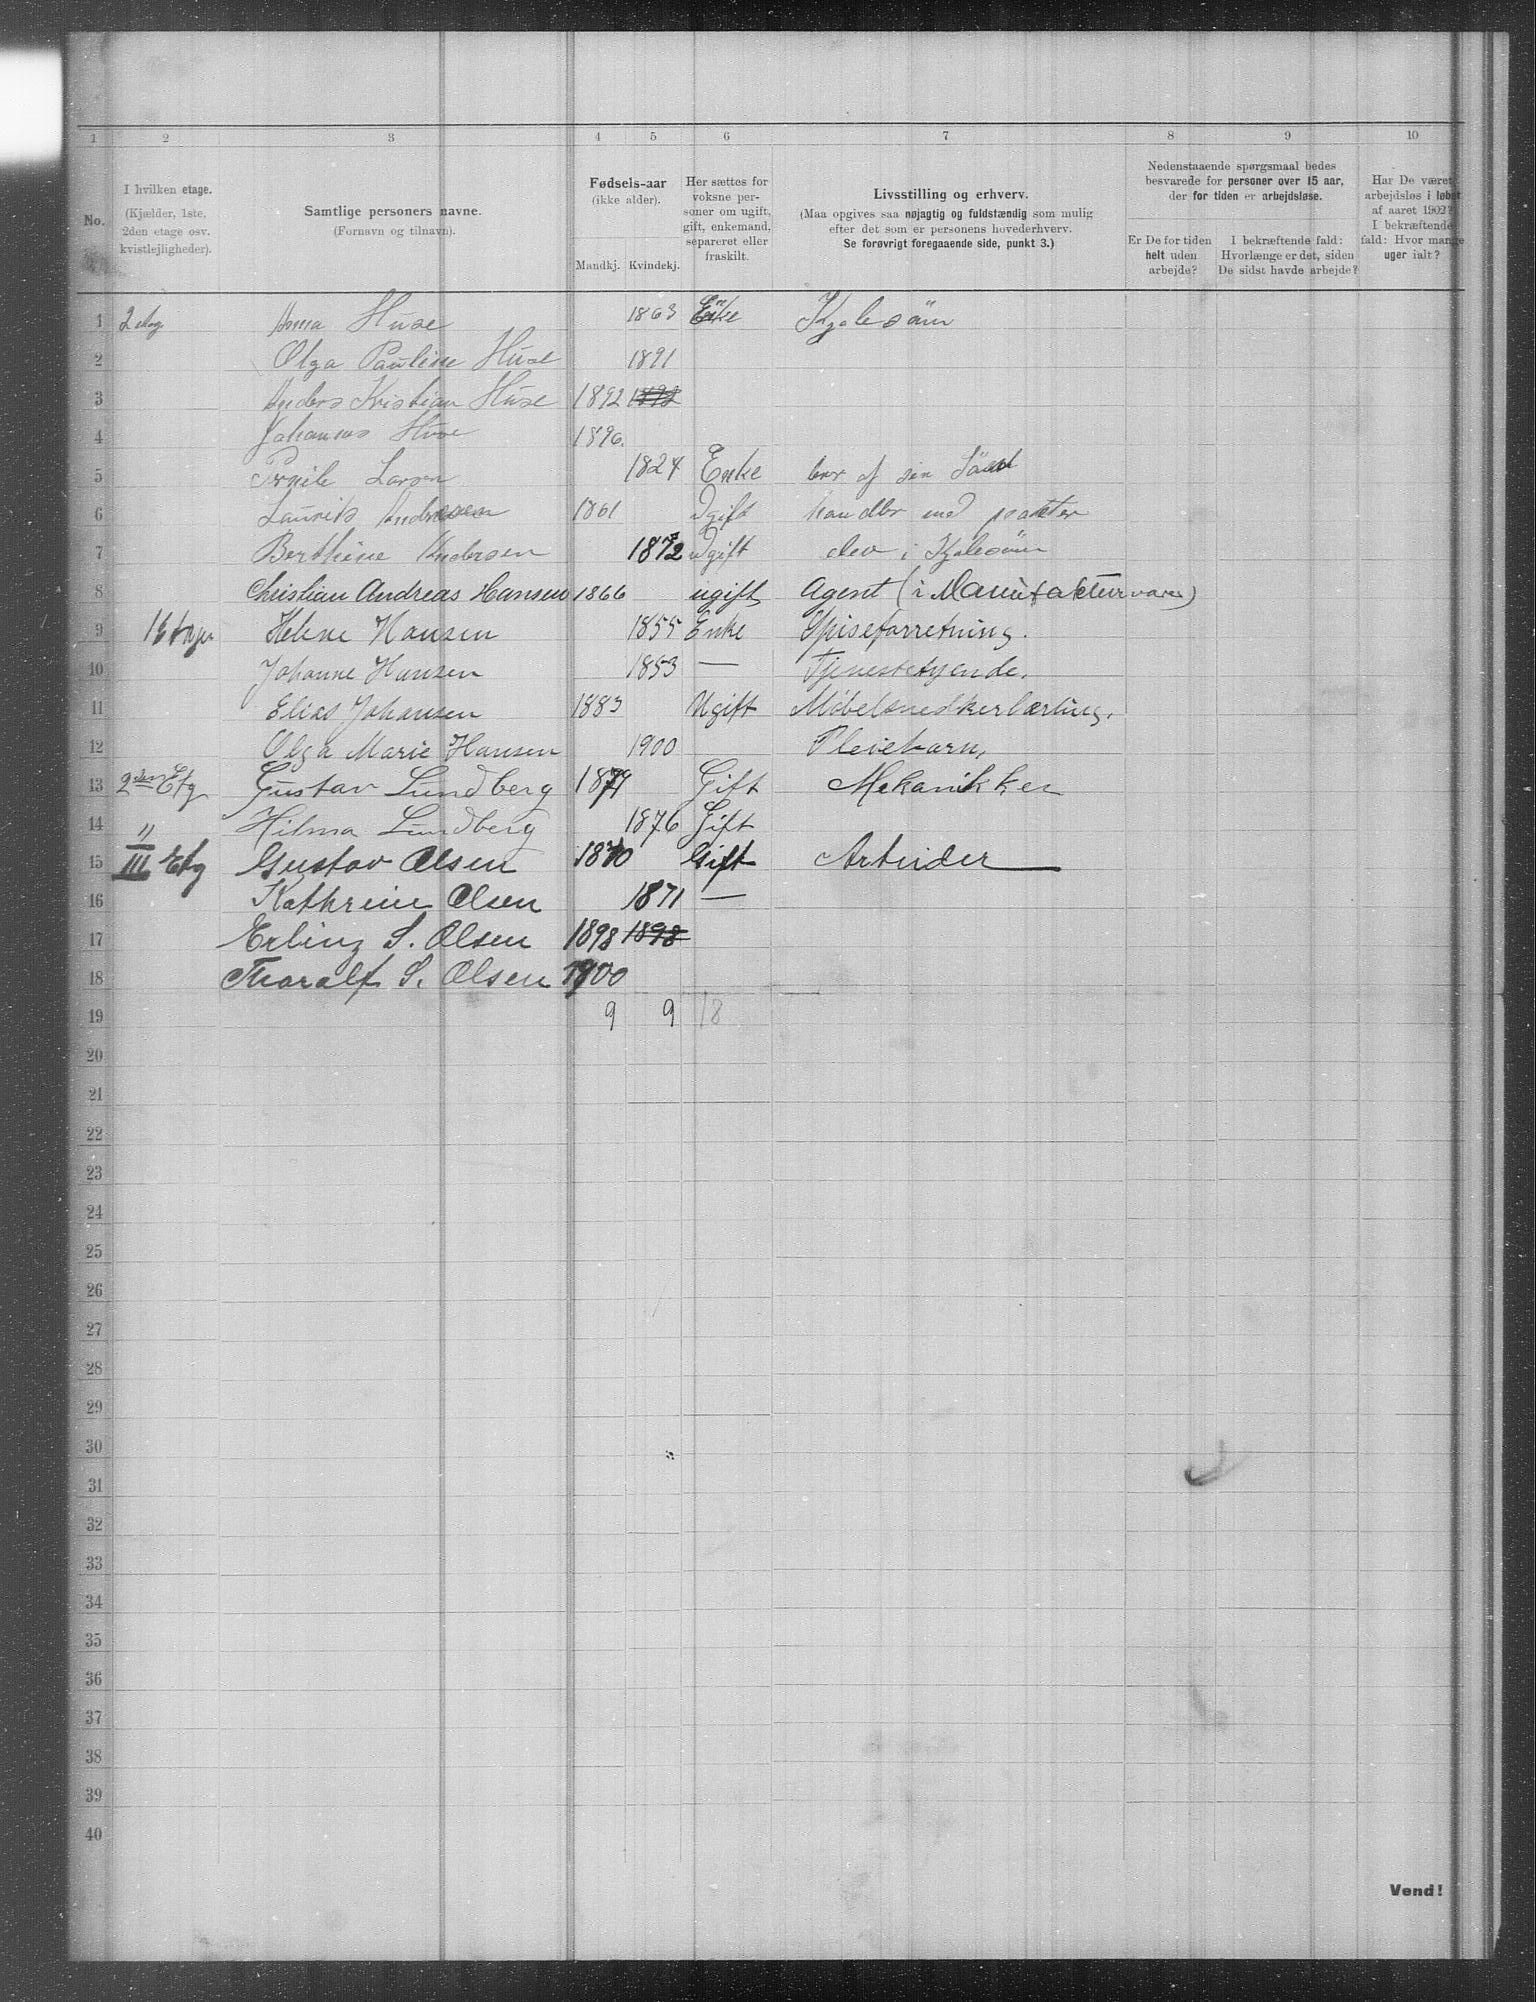 1 2 3 4 5 6 7 8 9 10
No.
I hvilken etage.
(Kjælder, 1ste,
2den etage osv.
kvistlejligheder).
Samtlige personers navne.
(Fornavn og tilnavn).
Fødsels-aar
(ikke alder).
Mandkj. Kvindekj.
Her sættes for
voksne per-
soner om ugift,
gift, enkemand,
separeret eller
fraskilt.
Livsstilling og erhverv.
(Maa opgives saa nøjagtig og fuldstændig som mulig
efter det som er personens hovederhverv.
Se forøvrigt foregaaende side, punkt 3.)
Nedenstaaende spørgsmaal bedes
besvarede for personer over 15 aar,
der for tiden er arbejdsløse.
Er De for tiden
helt uden
arbejde?
I bekræftende fald:
Hvorlænge er det, siden
De sidst havde arbejde?
Har De været
arbejdsløs i løbet
af aaret 1902?
I bekræftende
fald: Hvor mange
uger ialt?
1 2 etag Anna Huse 1863 Enke Kjolesöm
2 Olga Pauline Huse 1891
3 Anders Kristian Huse 1892 1892
4 Johannes Huse 1896.
5 Larsen 1824 Enke af sin
6 Laurits Andresen 1861 Ugift handler med
7 Berthine Andersen 1872 Ugift elev i Kjolesöm
8 Christian Andreas Hansen 1866 ugift Agent (i Manufakturvarer)
9 1 Etager Helene Hansen 1855 Enke Spiseforretning.
10 Johanne Hansen 1853 — Tjenestetyende.
11 Elias Johansen 1883 Ugift Møbelsnedkerlærling.
12 Olga Marie Hansen 1900 Pleiebarn,
13 2den Etg Gustav Lundberg 1879 Gift Mekanikker
14 " Hilma Lundberg 1876 Gift
15 III Etg Gustav Olsen 1870 Gift Arbeider
16 Kathrine Olsen 1871 —
17 Erling S. Olsen 1898 1898
18 Thoralf S. Olsen 1900
19 9 9 18
20
21
22
23
24
25
26
27
28
29
30
31
32
33
34
35
36
37
38
39
40
Vend!